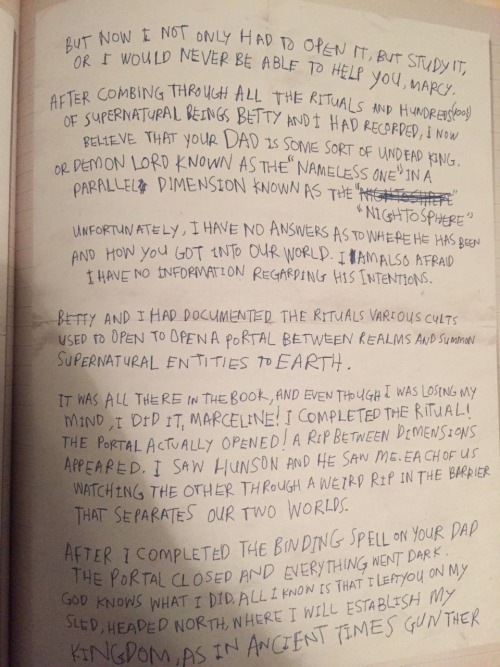 BUT NOW I NOT ONLY HAD TO OPEN IT, BUT STUDY IT,
OR I WOULD NEVER BE ABLE TO HELP YOU, MARCY.
AFTER COMBING THROUGH ALL THE RITUALS AND HUNDREDS (1000S)
OF SUPERNATURAL BEINGS BETTY AND I HAD RECORDED, I NOW
BELIEVE THAT YOUR DAD IS SOME SORT OF UNDEAD KING.
OR DEMON LORD KNOWN AS THE "NAMELESS ONE" IN A
PARALLEL DIMENSION KNOWN AS THE "NIGHTOSHPERE"
"NIGHTOSPHERE"
UNFORTUNATELY, I HAVE NO ANSWERS AS TO WHERE HE HAS BEEN
AND HOW YOU GOT INTO OUR WORLD. I AM ALSO AFRAID
I HAVE NO INFORMATION REGARDING HIS INTENTIONS.
BETTY AND I HAD DOCUMENTED THE RITUALS VARIOUS CULTS
USED TO OPEN TO OPEN A PORTAL BETWEEN REALMS AND SUMMON
SUPERNATURAL ENTITIES TO EARTH.
IT WAS ALL THERE IN THE BOOK, AND EVEN THOUGH I WAS LOSING MY
MIND, I DID IT, MARCELINE! I COMPLETED THE RITUAL!
THE PORTAL ACTUALLY OPENED! A RIP BETWEEN DIMENSIONS
APPEARED. I SAW HUNSON AND HE SAW ME. EACH OF US
WATCHING THE OTHER THROUGH A WEIRD RIP IN THE BARRIER
THAT SEPARATES OUR TWO WORLDS.
AFTER I COMPLETED THE BINDING SPELL ON YOUR DAD
THE PORTAL CLOSED AND EVERYTHING WENT DARK.
GOD KNOWS WHAT I DID. ALL I KNOW IS THAT I LEFT YOU ON MY
SLED, HEADED NORTH, WHERE I WILL ESTABLISH MY
KINGDOM, AS IN ANCIENT TIMES GUNTHER